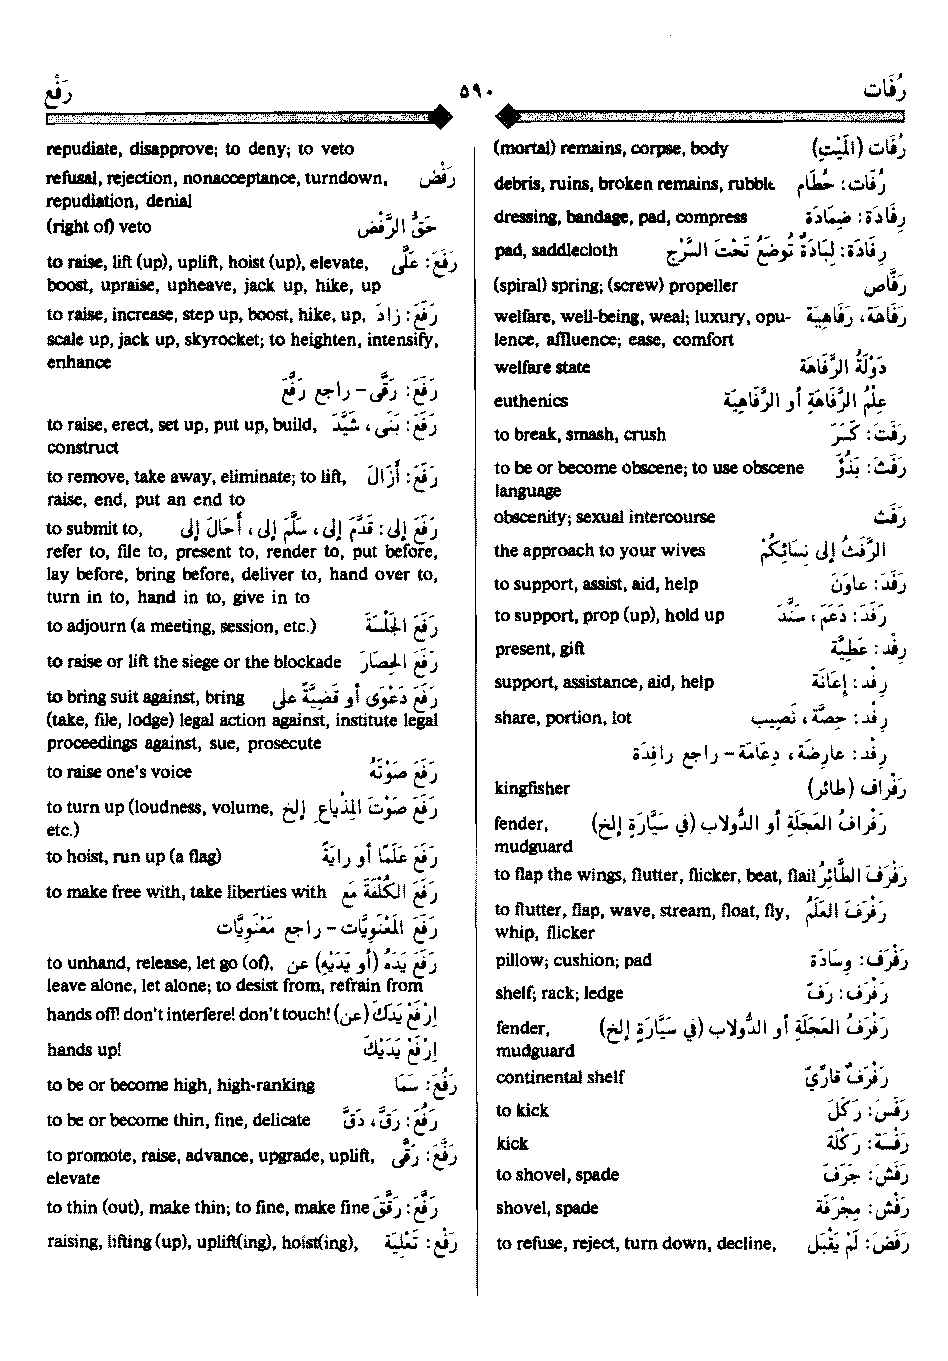 رُفَات ٥٩٠ رَفْع
(mortal) remains, corpse, body رُفَات (المَيِّتِ)
debris, ruins, broken remains, rubble رُفَات: حُطَام
dressing, bandage, pad, compress رِفَادَة: ضِمَادَة
pad, saddlecloth رِفَادَة: لِبَادَةٌ تُوضَعُ تَحْتَ السَّرْج
(spiral) spring; (screw) propeller رَفَّاص
welfare, well-being, weal; luxury, opu- رَفَاهَة، رَفَاهِيَة
lence, affluence; ease, comfort
welfare state دَوْلَةُ الرَّفَاهَة
euthenics عِلْمُ الرَّفَاهَةِ أو الرَّفَاهِيَة
to break, smash, crush رَفَتَ: كَسَرَ
to be or become obscene; to use obscene رَفَثَ: بَذُؤَ
language
obscenity; sexual intercourse رَفَث
the approach to your wives الرَّفَثُ إلى نِسَائِكُمْ
to support, assist, aid, help رَفَدَ: عَاوَنَ
to support, prop (up), hold up رَفَدَ: دَعَمَ، سَنَّدَ
present, gift رِفْد: عَطِيَّة
support, assistance, aid, help رِفْد: إعَانَة
share, portion, lot رِفْد: حِصَّة، نَصِيب
رِفْد: عَارِضَة، دِعَامَة - راجع رافِدَة
kingfisher رَفْرَاف (طائر)
fender, رَفْرَافُ العَجَلَةِ أو الدُّولاب (في سَيَّارَةٍ إلخ)
mudguard
to flap the wings, flutter, flicker, beat, flail رَفْرَفَ الطَّائِرُ
to flutter, flap, wave, stream, float, fly, رَفْرَفَ العَلَمُ
whip, flicker
pillow; cushion; pad رَفْرَف: وِسَادَة
shelf; rack; ledge رَفْرَف: رَفّ
fender, رَفْرَفُ العَجَلَةِ أو الدُّولاب (في سَيَّارَةٍ إلخ)
mudguard
continental shelf رَفْرَفٌ قَارِّيّ
to kick رَفَسَ: رَكَلَ
kick رَفْسَة: رَكْلَة
to shovel, spade رَفَشَ: جَرَفَ
shovel, spade رَفْش: مِجْرَفَة
to refuse, reject, turn down, decline, رَفَضَ: لَمْ يَقْبَل
repudiate, disapprove; to deny; to veto
refusal, rejection, nonacceptance, turndown, رَفْض
repudiation, denial
(right of) veto حَقُّ الرَّفْض
to raise, lift (up), uplift, hoist (up), elevate, رَفَعَ: عَلَّى
boost, upraise, upheave, jack up, hike, up
to raise, increase, step up, boost, hike, up, رَفَعَ: زادَ
scale up, jack up, skyrocket; to heighten, intensify,
enhance
رَفَعَ: رَقَّى - راجع رَفَّعَ
to raise, erect, set up, put up, build, رَفَعَ: بَنَى، شَيَّدَ
construct
to remove, take away, eliminate; to lift, رَفَعَ: أزَالَ
raise, end, put an end to
to submit to, رَفَعَ إلى: قَدَّمَ إلى، سَلَّمَ إلى، أحَالَ إلى
refer to, file to, present to, render to, put before,
lay before, bring before, deliver to, hand over to,
turn in to, hand in to, give in to
to adjourn (a meeting, session, etc.) رَفَعَ الجَلْسَةَ
to raise or lift the siege or the blockade رَفَعَ الحِصَارَ
to bring suit against, bring رَفَعَ دَعْوَى أو قَضِيَّةً على
(take, file, lodge) legal action against, institute legal
proceedings against, sue, prosecute
to raise one's voice رَفَعَ صَوْتَهُ
to turn up (loudness, volume, رَفَعَ صَوْتَ المِذْيَاعِ إلخ
etc.)
to hoist, run up (a flag) رَفَعَ عَلَمًا أو رايَةً
to make free with, take liberties with رَفَعَ الكُلْفَةَ مَعَ
رَفَعَ المَعْنَوِيَّات - راجع مَعْنَوِيَّات
to unhand, release, let go (of), رَفَعَ يَدَهُ (أو يَدَيْهِ) عن
leave alone, let alone; to desist from, refrain from
hands off! don't interfere! don't touch! اِرْفَعْ يَدَكَ (عن)
hands up! اِرْفَعْ يَدَيْكَ
to be or become high, high-ranking رَفُعَ: سَمَا
to be or become thin, fine, delicate رَفُعَ: رَقَّ، دَقَّ
to promote, raise, advance, upgrade, uplift, رَفَّعَ: رَقَّى
elevate
to thin (out), make thin; to fine, make fine رَفَّعَ: رَقَّقَ
raising, lifting (up), uplift(ing), hoist(ing), رَفْع: تَعْلِيَة